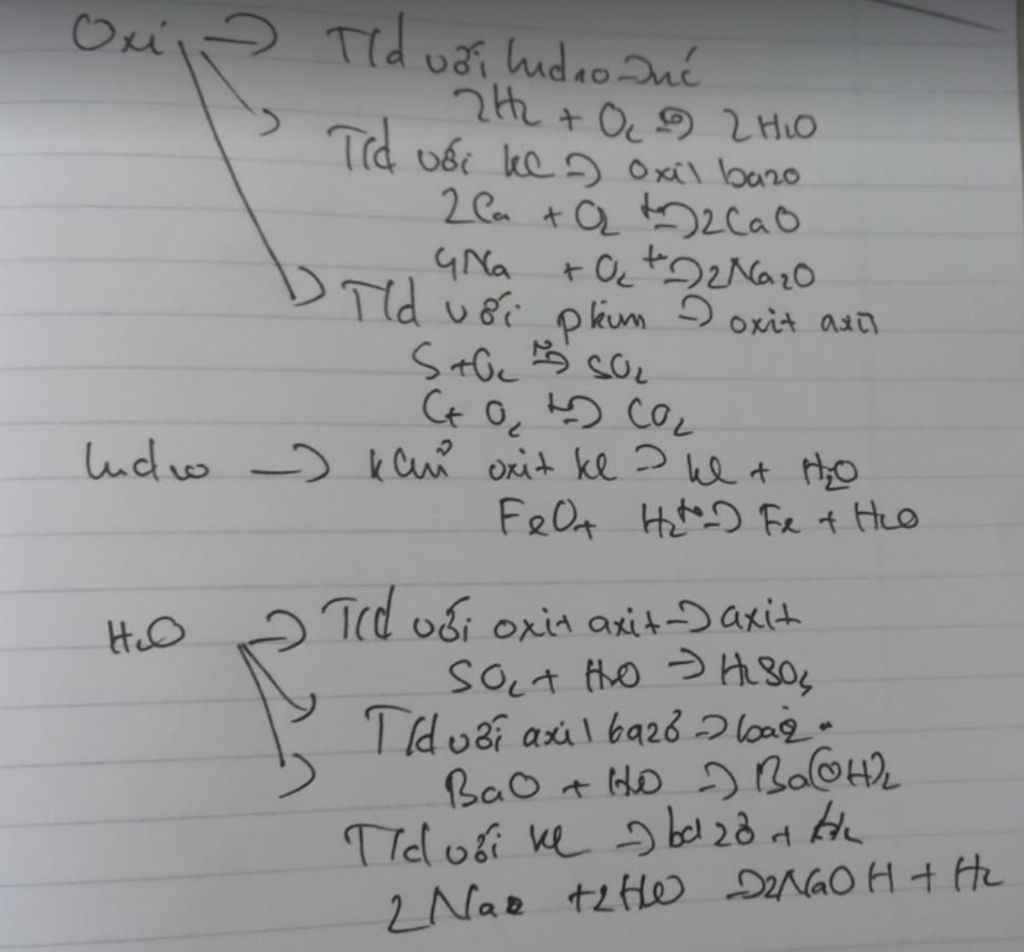 Oxi → T/d với hidro → nước
2H2 + O2 → 2H2O
T/d với kl → oxit bazo
2Ca + O2 t°→ 2CaO
4Na + O2 t°→ 2Na2O
T/d với pkim → oxit axit
S + O2 t°→ SO2
C + O2 t°→ CO2
hidro → khử oxit kl → kl + H2O
FeO + H2 t°→ Fe + H2O
H2O → T/d với oxit axit → axit
SO2 + H2O → H2SO3
T/d với axit bazơ →
BaO + H2O → Ba(OH)2
T/d với kl → bazơ + H2
2Na + 2H2O → 2NaOH + H2